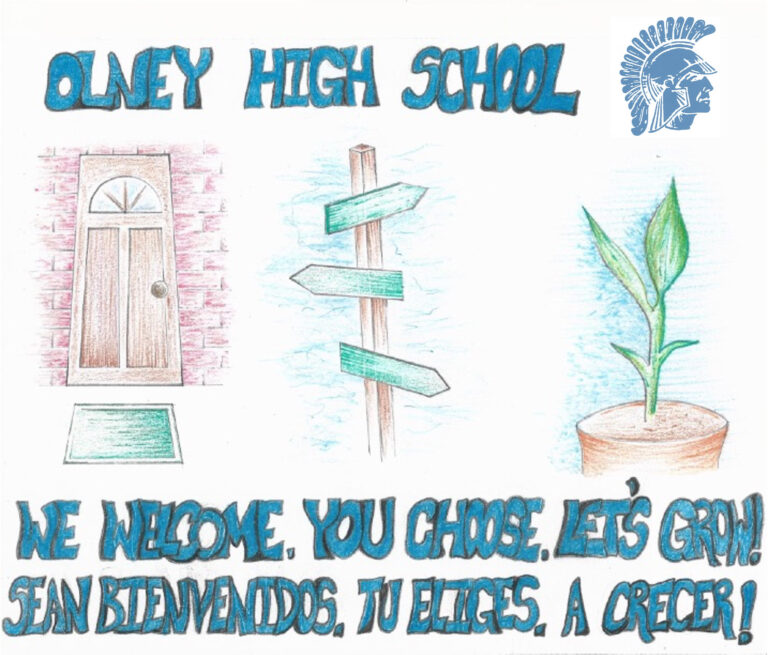 OLNEY HIGH SCHOOL
WE WELCOME. YOU CHOOSE. LET'S GROW!
SEAN BIENVENIDOS. TU ELIGES. A CRECER!